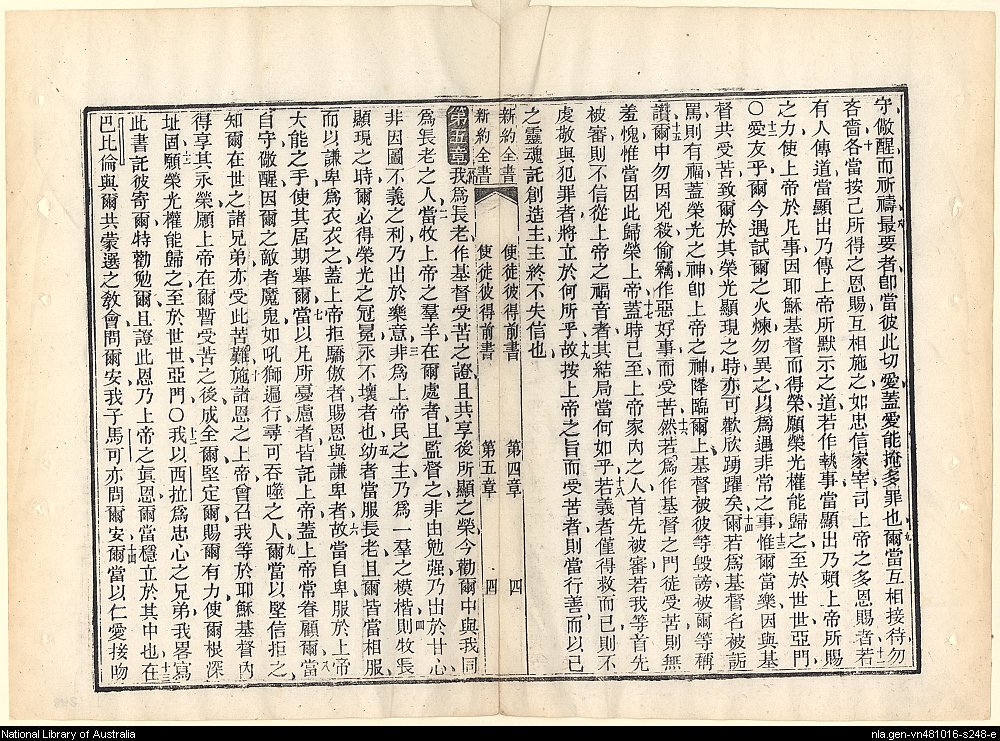 守儆醒而祈禱最要者卽當彼此切愛蓋愛能掩多罪也爾當互相接待勿
吝嗇各當按己所得之恩賜互相施之如忠信家宰司上帝之多恩賜者若
有人傳道當顯出乃傳上帝所默示之道若作執事當顯出乃賴上帝所賜
之力使上帝於凡事因耶穌基督而得榮願榮光權能歸之至於世世亞門
〇愛友乎爾今遇試爾之火煉勿異之以爲遇非常之事惟爾當樂因與基
督共受苦致爾於其榮光顯現之時亦可歡欣踴躍矣爾若爲基督名被詬
罵則有福蓋榮光之神卽上帝之神降臨爾上基督被彼等毀謗被爾等稱
讚爾中勿因兇殺偷竊作惡好事而受苦然若爲作基督之門徒受苦則無
羞愧惟當因此歸榮上帝蓋時已至上帝家內之人首先被審若我等首先
被審則不信從上帝之福音者其結局當何如乎若義者僅得救而已則不
虔敬與犯罪者將立於何所乎故按上帝之旨而受苦者則當行善而以己
之靈魂託創造主主終不失信也
新約全書 使徒彼得前書 第四章 四
新約全書 使徒彼得前書 第五章 四
第五章 我爲長老作基督受苦之證且共享後所顯之榮今勸爾中與我同
爲長老之人當牧上帝之羣羊在爾處者且監督之非由勉强乃出於甘心
非因圖不義之利乃出於樂意非爲上帝民之主乃爲一羣之模楷則牧長
顯現之時爾必得榮光之冠冕永不壞者也幼者當服長老且爾皆當相服
而以謙卑爲衣衣之蓋上帝拒驕傲者賜恩與謙卑者故當自卑服於上帝
大能之手使其屆期舉爾當以凡所憂慮者皆託上帝蓋上帝常眷顧爾當
自守儆醒因爾之敵者魔鬼如吼獅遍行尋可吞噬之人爾當以堅信拒之
知爾在世之諸兄弟亦受此苦難施諸恩之上帝會召我等於耶穌基督內
得享其永榮願上帝在爾暫受苦之後成全爾堅定爾賜爾有力使爾根深
址固願榮光權能歸之至於世世亞門〇我以西拉爲忠心之兄弟我畧寫
此書託彼寄爾特勸勉爾且證此恩乃上帝之眞恩爾當穩立於其中也在
巴比倫與爾共蒙選之敎會問爾安我子馬可亦問爾安爾當以仁愛接吻
National Library of Australia
nla.gen-vn481016-s248-e